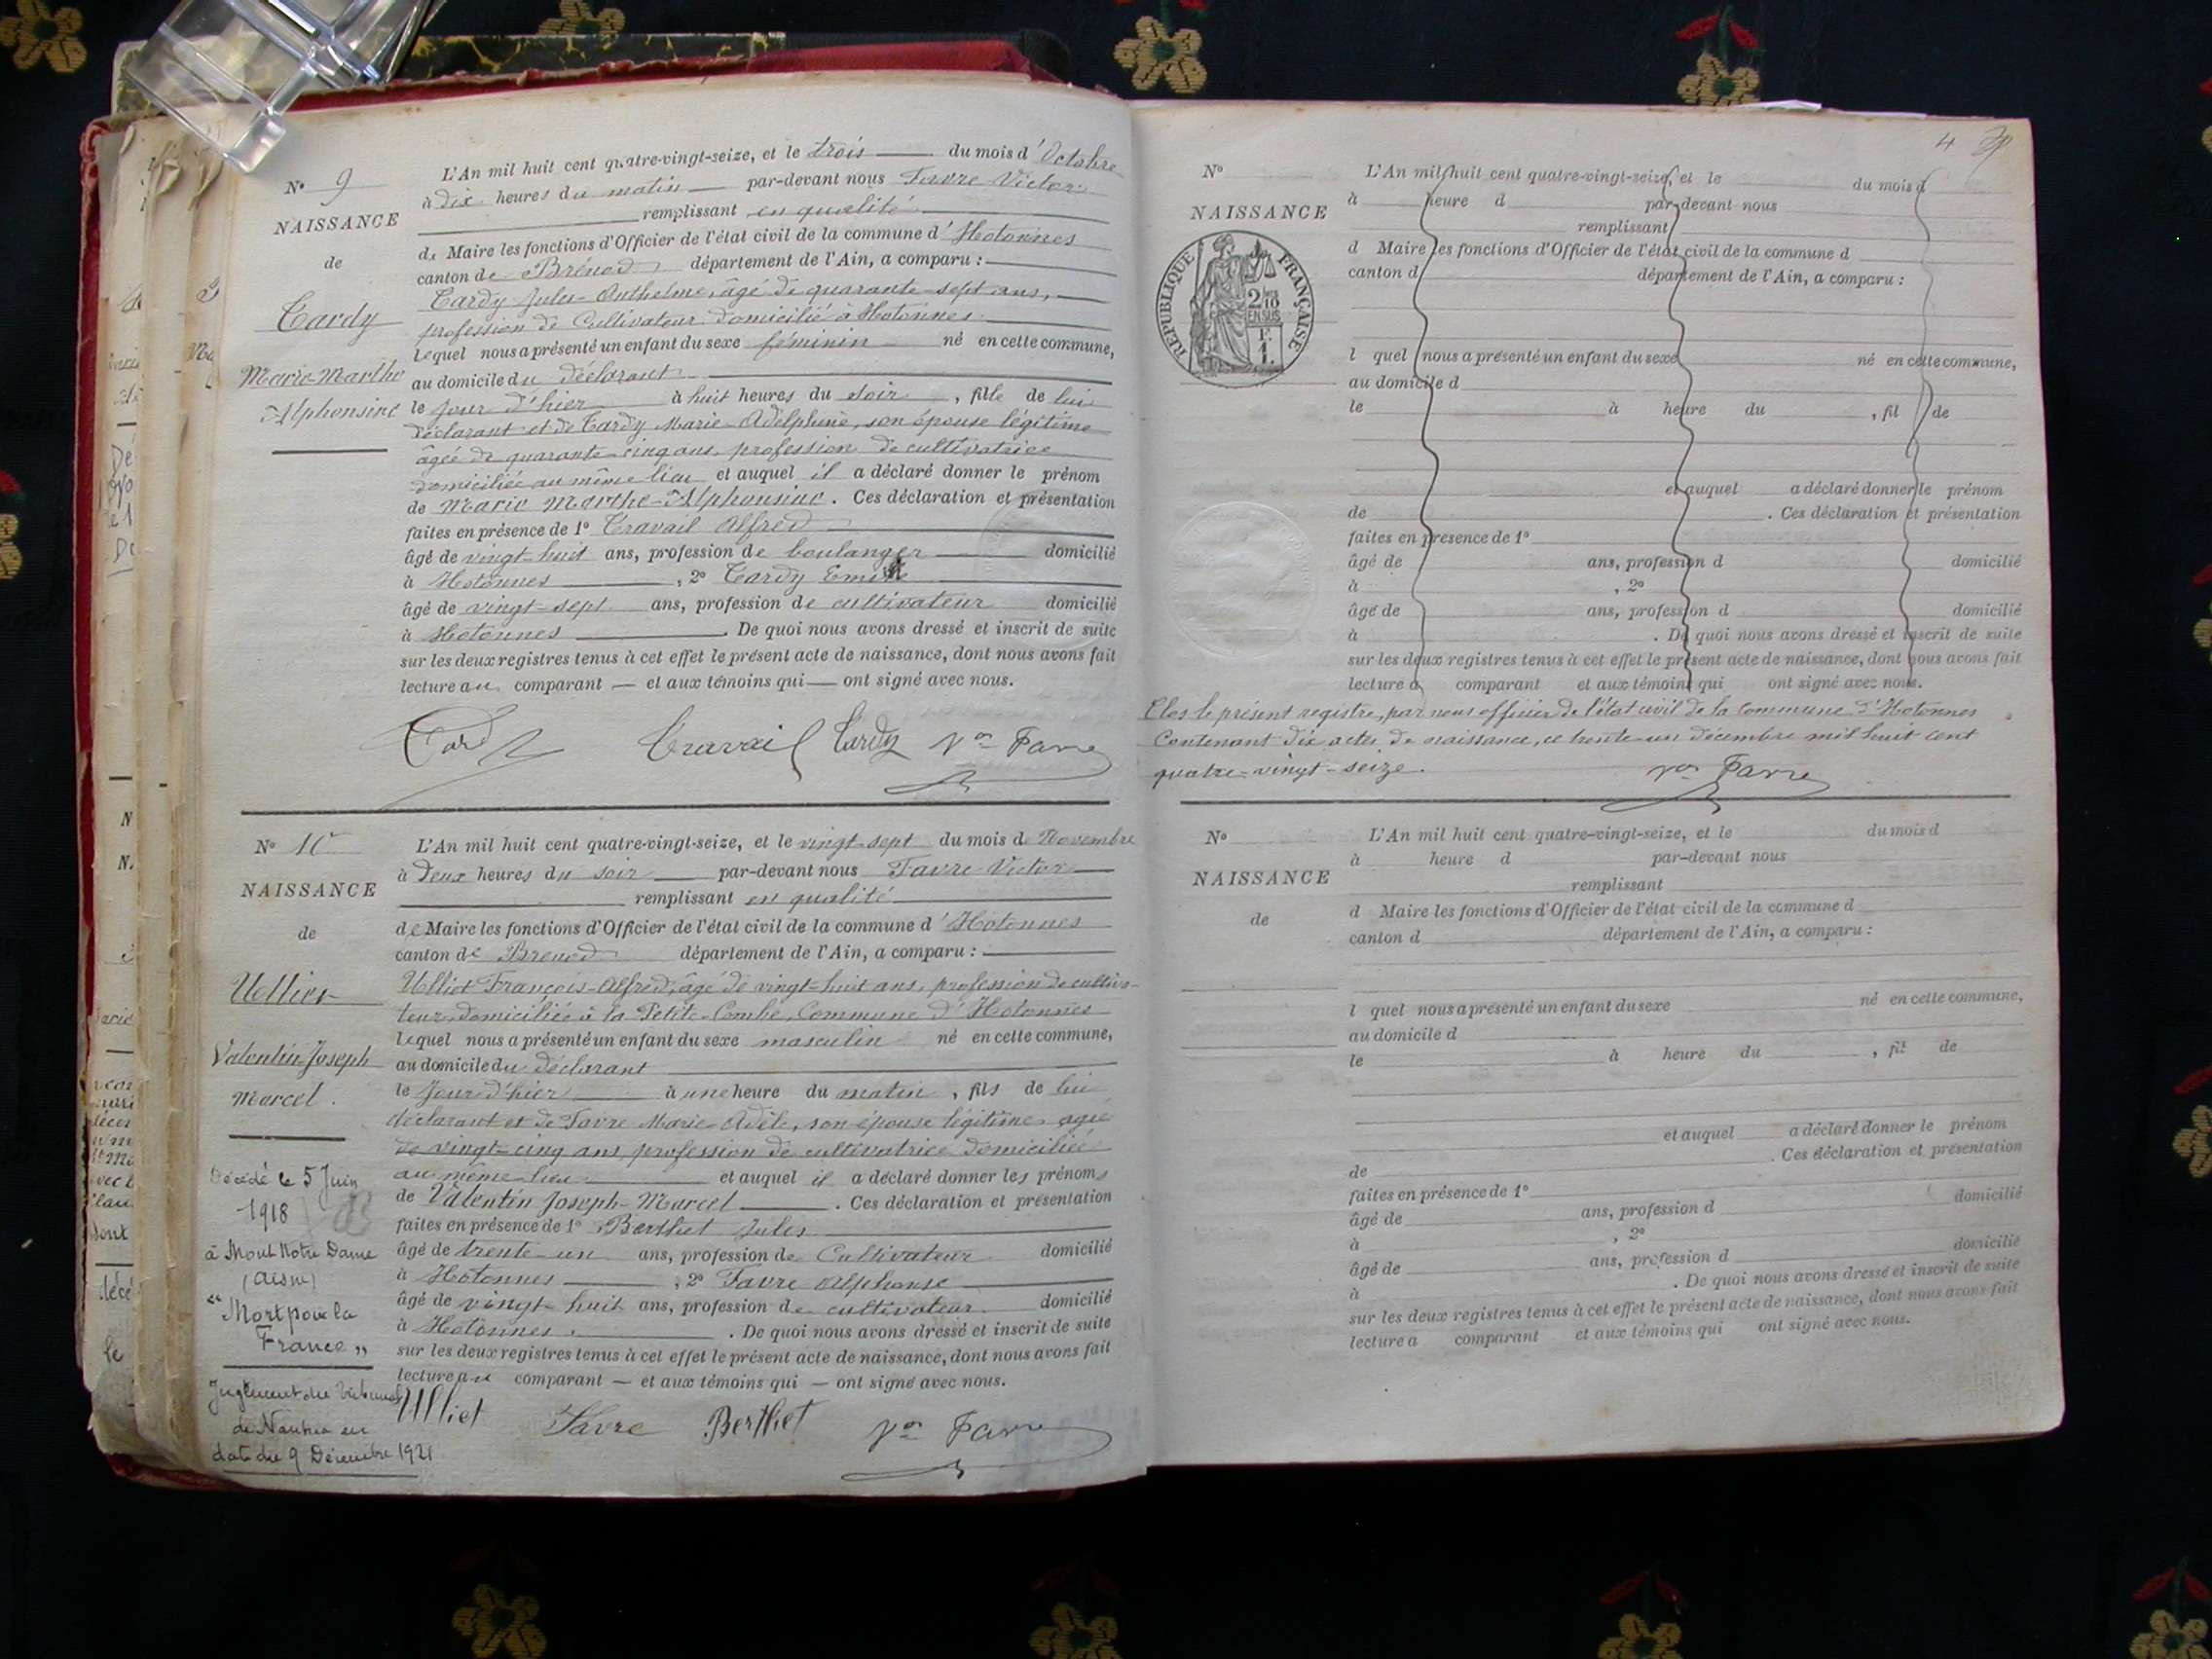 N° 9
NAISSANCE
de
Tardy
Marie-Marthe
Alphonsine
L'An mil huit cent quatre-vingt-seize, et le trois du mois d'Octobre
à dix heures du matin par-devant nous Favre Victor
remplissant en qualité
de Maire les fonctions d'Officier de l'état civil de la commune d'Hotonnes
canton de Brénod département de l'Ain, a comparu :
Tardy Jules-Anthelme, âgé de quarante-sept ans,
profession de Cultivateur domicilié à Hotonnes
lequel nous a présenté un enfant du sexe féminin né en cette commune,
au domicile du déclarant
le jour d'hier à huit heures du soir, fille de lui
déclarant et de Tardy Marie-Adelphine, son épouse légitime
âgée de quarante-cinq ans, profession de cultivatrice
domiciliée au même lieu et auquel il a déclaré donner le prénom
de Marie Marthe-Alphonsine. Ces déclaration et présentation
faites en présence de 1° Travail Alfred
âgé de vingt-huit ans, profession de boulanger domicilié
à Hotonnes, 2° Tardy Emile
âgé de vingt-sept ans, profession de cultivateur domicilié
à Hotonnes. De quoi nous avons dressé et inscrit de suite
sur les deux registres tenus à cet effet le présent acte de naissance, dont nous avons fait
lecture au comparant — et aux témoins qui — ont signé avec nous.
Tardy Travail Tardy Vor Favre
N° 10
NAISSANCE
de
Ulliet
Valentin Joseph
Marcel.
Décédé le 5 Juin
1918
à Mont Notre Dame
(Aisne)
"Mort pour la
France"
Jugement du Tribunal
de Nantua en
date du 9 Décembre 1921
L'An mil huit cent quatre-vingt-seize, et le vingt-sept du mois de Novembre
à deux heures du soir par-devant nous Favre Victor
remplissant en qualité
de Maire les fonctions d'Officier de l'état civil de la commune d'Hotonnes
canton de Brenod département de l'Ain, a comparu :
Ulliet François-Alfred, âgé de vingt-huit ans, profession de cultiva-
teur domiciliée à la Petite-Combe, Commune d'Hotonnes
lequel nous a présenté un enfant du sexe masculin né en cette commune,
au domicile du déclarant
le jour d'hier à une heure du matin, fils de lui
déclarant et de Favre Marie-Adèle, son épouse légitime agée
de vingt-cinq ans, profession de cultivatrice domiciliée
au même lieu et auquel il a déclaré donner les prénoms
de Valentin Joseph-Marcel. Ces déclaration et présentation
faites en présence de 1° Berthet Jules
âgé de trente-un ans, profession de Cultivateur domicilié
à Hotonnes, 2° Favre Alphonse
âgé de vingt-huit ans, profession de cultivateur domicilié
à Hotonnes. De quoi nous avons dressé et inscrit de suite
sur les deux registres tenus à cet effet le présent acte de naissance, dont nous avons fait
lecture au comparant — et aux témoins qui — ont signé avec nous.
Ulliet Favre Berthet Vor Favre
4
N°
NAISSANCE
REPUBLIQUE FRANÇAISE
2/10
EN SUS
F.
1.
L'An mil huit cent quatre-vingt-seize, et le du mois d
à heure d par-devant nous
remplissant
d Maire les fonctions d'Officier de l'état civil de la commune d
canton d département de l'Ain, a comparu :
l quel nous a présenté un enfant du sexe né en cette commune,
au domicile d
le à heure du , fil de
et auquel a déclaré donner le prénom
de . Ces déclaration et présentation
faites en présence de 1°
âgé de ans, profession d domicilié
à , 2°
âgé de ans, profession d domicilié
à . De quoi nous avons dressé et inscrit de suite
sur les deux registres tenus à cet effet le présent acte de naissance, dont nous avons fait
lecture a comparant et aux témoins qui ont signé avec nous.
Clos le présent registre, par nous officier de l'état civil de la Commune d'Hotonnes
Contenant dix actes de naissance, ce trente un décembre mil huit cent
quatre-vingt-seize. Vor Favre
N°
NAISSANCE
de
L'An mil huit cent quatre-vingt-seize, et le du mois d
à heure d par-devant nous
remplissant
d Maire les fonctions d'Officier de l'état civil de la commune d
canton d département de l'Ain, a comparu :
l quel nous a présenté un enfant du sexe né en cette commune,
au domicile d
le à heure du , fil de
et auquel a déclaré donner le prénom
de . Ces déclaration et présentation
faites en présence de 1°
âgé de ans, profession d domicilié
à , 2°
âgé de ans, profession d domicilié
à . De quoi nous avons dressé et inscrit de suite
sur les deux registres tenus à cet effet le présent acte de naissance, dont nous avons fait
lecture a comparant et aux témoins qui ont signé avec nous.